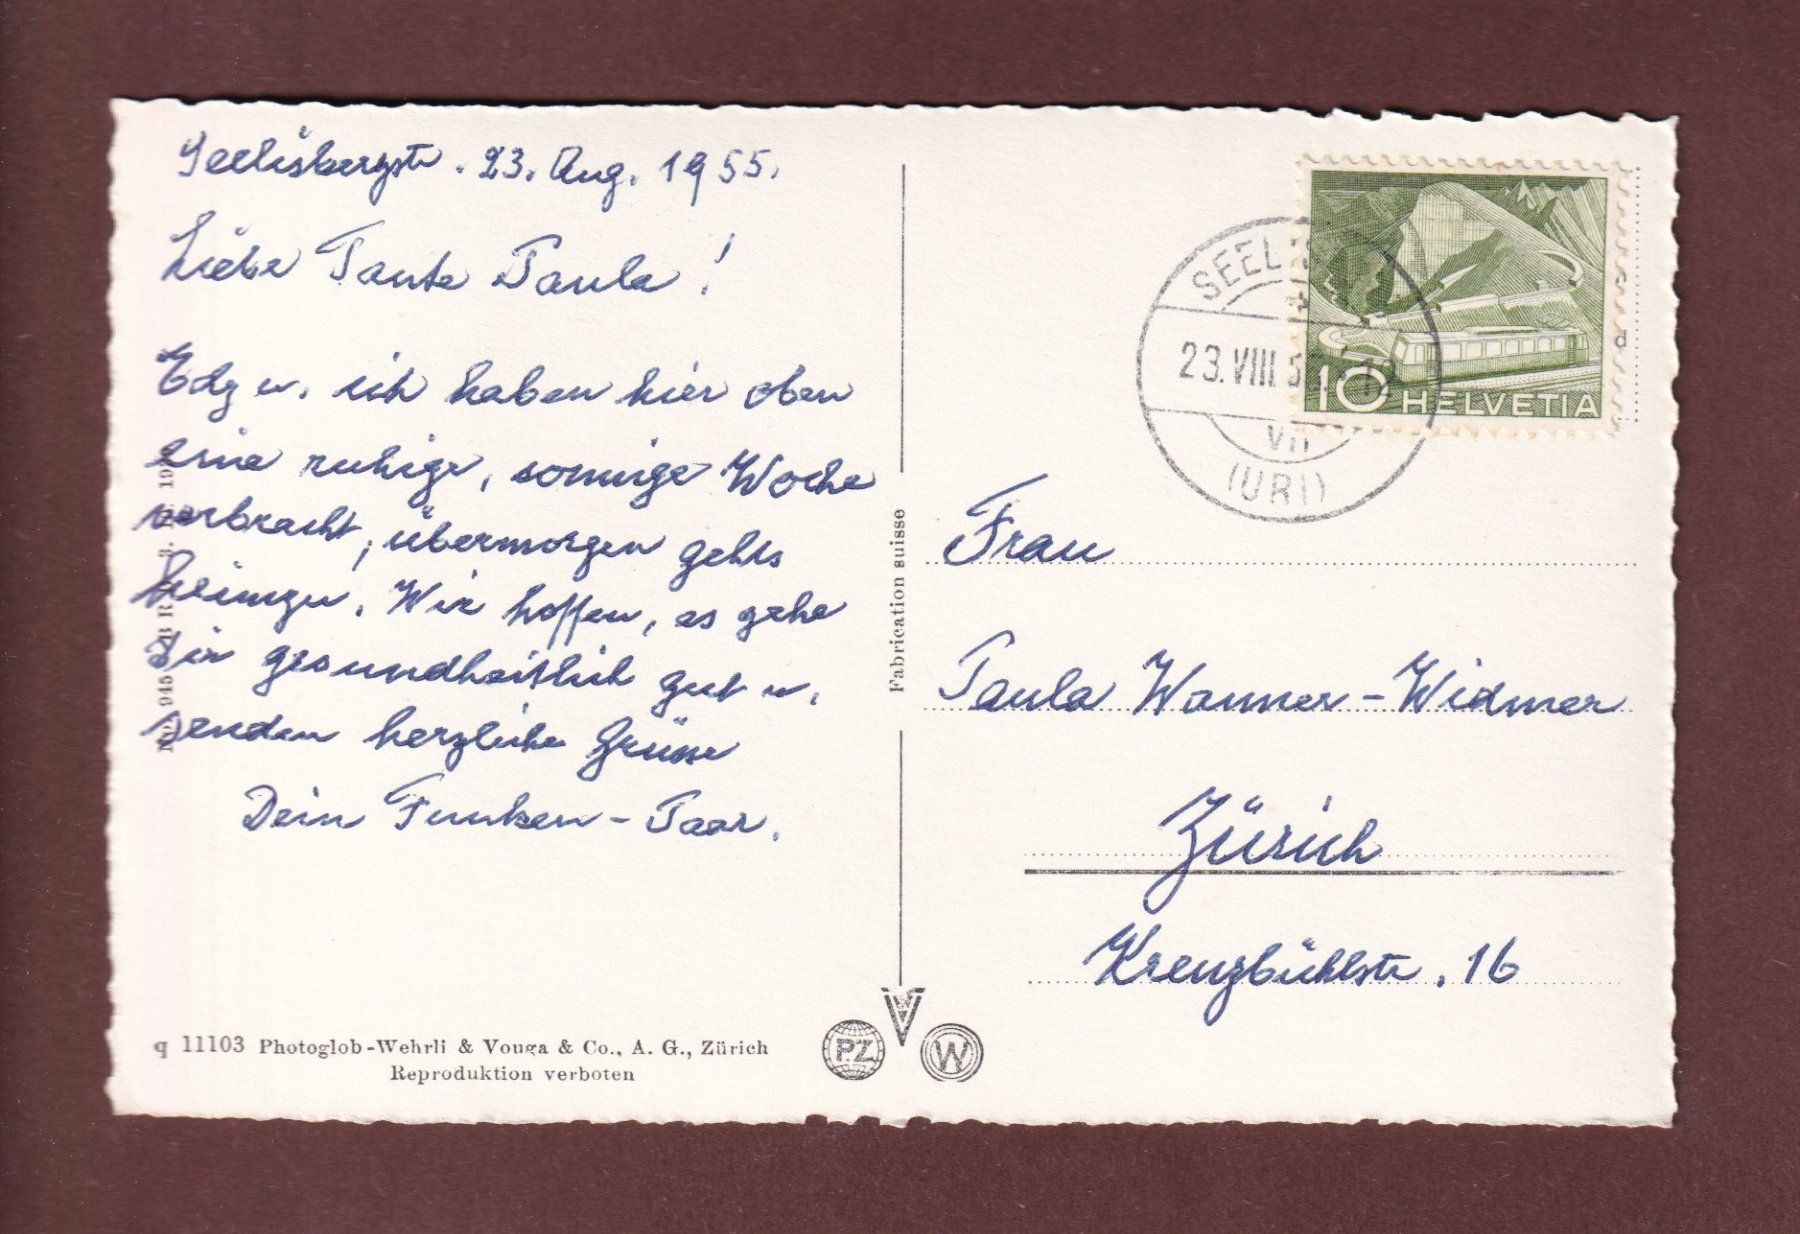 Seelisberg, 23. Aug. 1955.
Liebe Tante Paula!
Edy u. ich haben hier oben
eine ruhige, sonnige Woche
verbracht, übermorgen gehts
heimzu. Wir hoffen, es gehe
Dir gesundheitlich gut u.
senden herzliche Grüsse
Dein Funken-Paar.
q 11103 Photoglob-Wehrli & Vouga & Co., A. G., Zürich
Reproduktion verboten
Fabrication suisse
PZ
V
W
SEEL
23. VIII. 5
VII
(URI)
10 HELVETIA
Frau
Paula Wanner-Widmer
Zürich
Kreuzbühlstr. 16